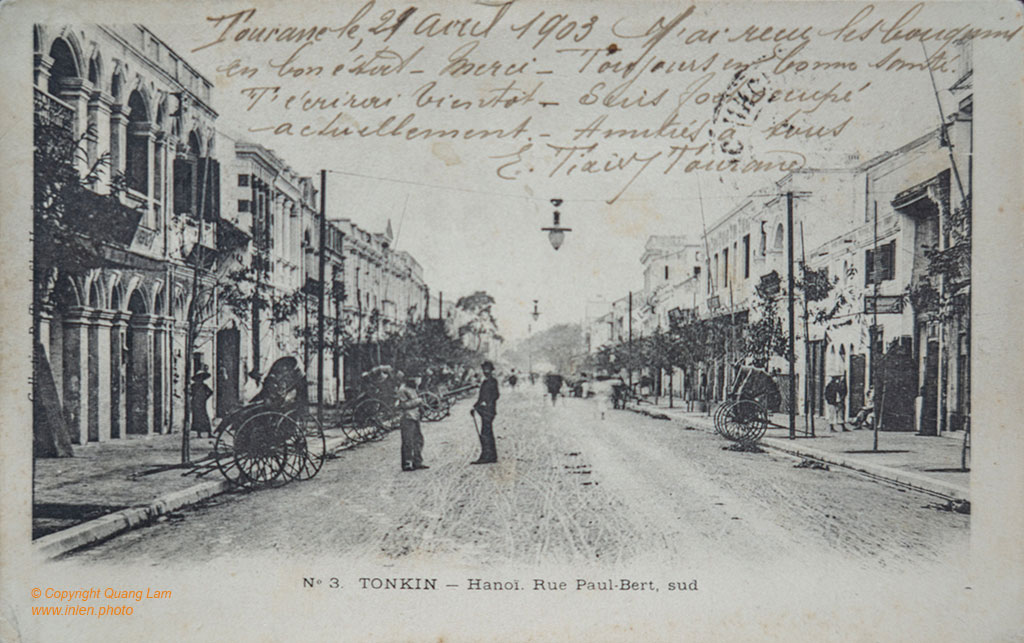 Tourane le, 21 avril 1903 J'ai reçu les bouquins
en bon état - Merci - Toujours en bonne santé.
T'écrirai bientôt - Suis fort occupé
actuellement. - Amitiés à tous
E. Tourane
N° 3. TONKIN — Hanoï. Rue Paul-Bert, sud
© Copyright Quang Lam
www.inlen.photo